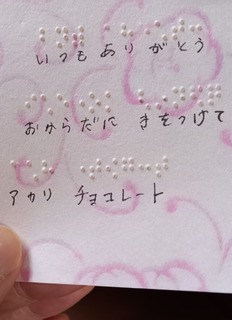 いつも ありがとう
おからだに きをつけて
アカリ チョコレート